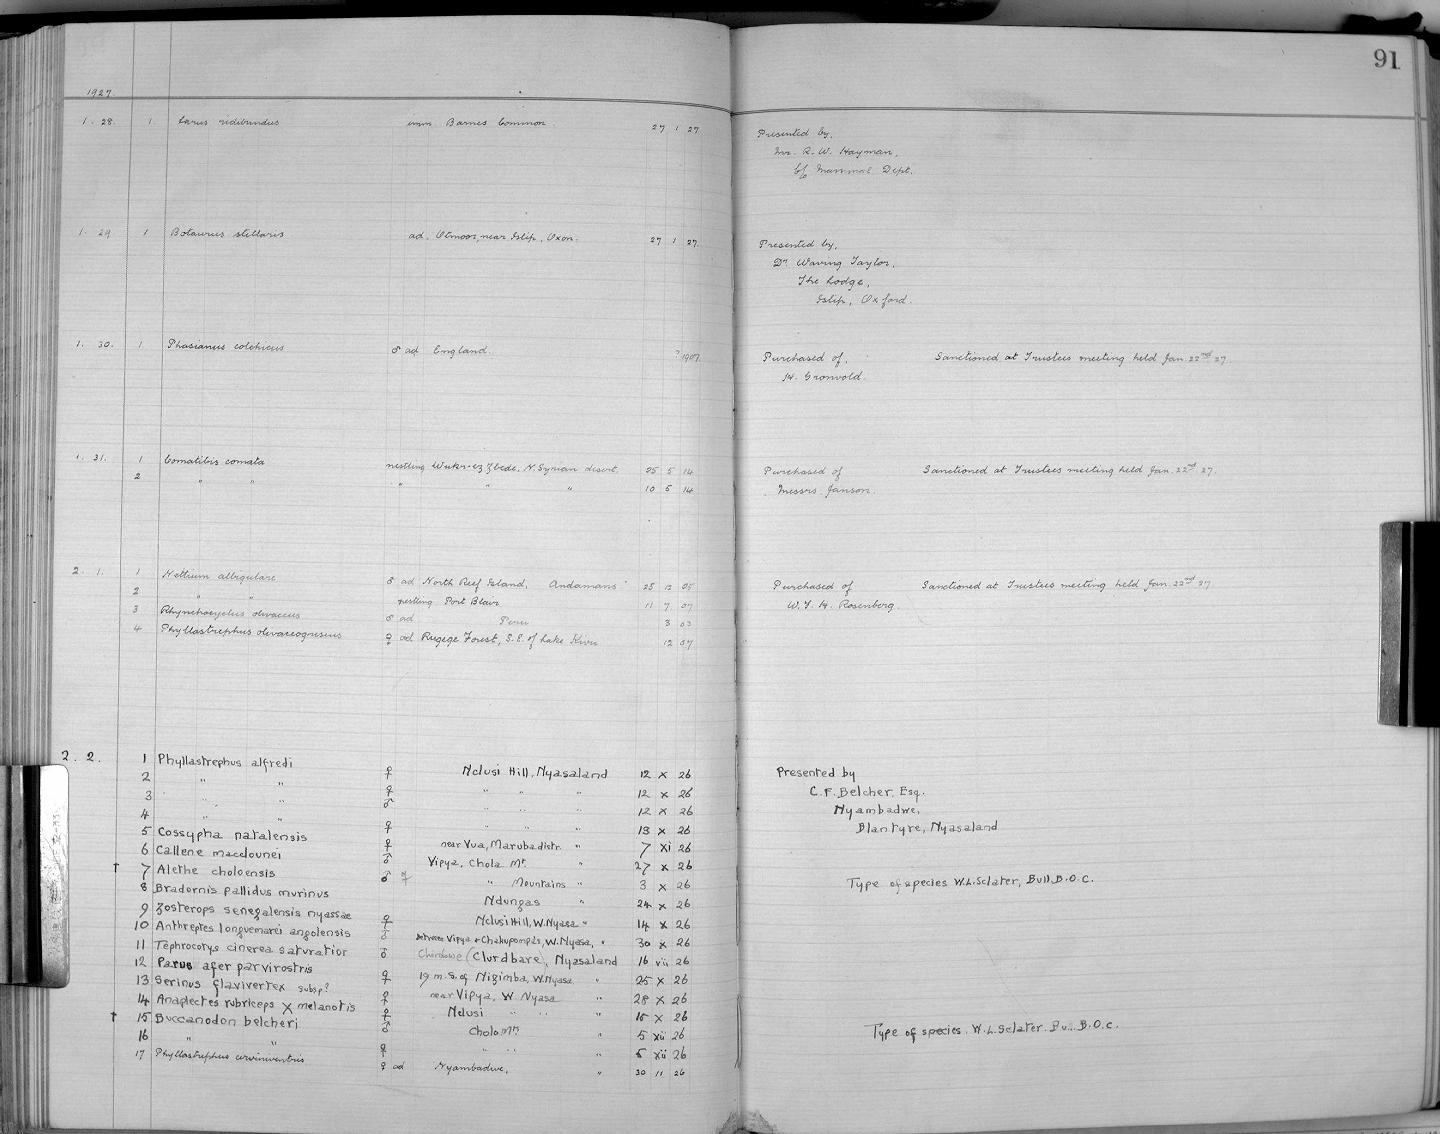 91
1927.
1. 28. 1. Larus ridibundus imm. Barnes Common. 27 1 27.
Presented by,
Mr. R. W. Hayman,
c/o Mammal Dept.
1. 29 1 Botaurus stellaris ad. Otmoor, near Islip, Oxon. 27 1 27.
Presented by,
Dr Waring Taylor,
The Lodge,
Islip, Oxford.
1. 30. 1 Phasianus colchicus ♂ ad England. ? 1907.
Purchased of, Sanctioned at Trustees meeting held Jan. 22nd 27.
H. Gronvold.
1. 31. 1 Comatibis comata nestling Wukr-ez Zbede, N. Syrian desert. 25 5 14
2 " " " " " 10 5 14
Purchased of Sanctioned at Trustees meeting held Jan. 22nd 27.
Messrs Janson.
2. 1. 1 Nettium albigulare ♂ ad North Reef Island, Andamans 25 12 05
2 " " nestling Port Blair 11 7 07
3 Rhynchocyclus olivaceus ♂ ad Peru 3 03
4 Phyllastrephus olivaceogriseus ♀ ad Rugege Forest, S.E. of Lake Kivu 12 07
Purchased of Sanctioned at Trustees meeting held Jan. 22nd 27.
W. F. H. Rosenberg
2. 2. 1 Phyllastrephus alfredi ♀ Nclusi Hill, Nyasaland 12 x 26
2 " " ♀ " " " 12 x 26
3 " " ♂ " " " 12 x 26
4 " " ♀ " " " 13 x 26
5 Cossypha natalensis ♀ near Vua, Maruba distr. " 7 xi 26
6 Callene macclounei ♂ Vipya, Chola Mt. " 27 x 26
† 7 Alethe choloensis ♂ " Mountains " 3 x 26
8 Bradornis pallidus murinus Ndungas 24 x 26
9 Zosterops senegalensis nyassae ♀ Nclusi Hill, W. Nyasa " 14 x 26
10 Anthreptes longuemarei angolensis ♂ between Vipya & Chakupompas, W. Nyasa, " 30 x 26
11 Tephrocorys cinerea saturatior ♂ (Clurdbare), Nyasaland 16 vii 26
12 Parus afer parvirostris ♀ 19 m. S. of Nizimba, W. Nyasa " 25 x 26
13 Serinus flavivertex subsp? ♀ near Vipya, W. Nyasa " 28 x 26
14 Anaplectes rubriceps X melanotis ♀ Nclusi " " " 15 x 26
† 15 Buccanodon belcheri ♂ Cholo Mt. " 5 xii 26
16 " " ♀ " " " 5 xii 26
17 Phyllastrephus cerviniventris ♀ ad Nyambadwe, " 30 11 26
Presented by
C. F. Belcher, Esq.
Nyambadwe,
Blantyre, Nyasaland
Type of species W. L. Sclater, Bull. B.O.C.
Type of species, W. L. Sclater. Bull. B.O.C.